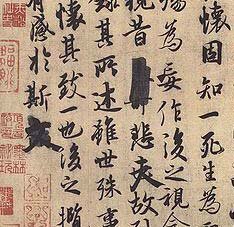 懷固知一死生為
殤為妄作後之視今
視昔悲夫故列
錄其所述雖世殊事
懷其致一也後之攬
有感於斯文